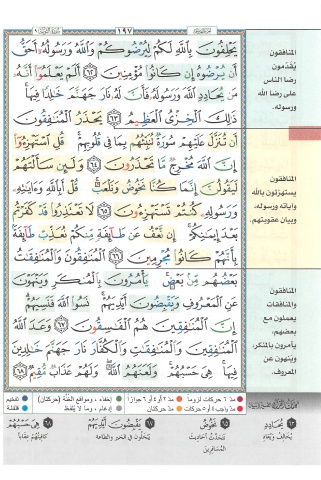 ١٩٧
يَحْلِفُونَ بِاللَّهِ لَكُمْ لِيُرْضُوكُمْ وَاللَّهُ وَرَسُولُهُ أَحَقُّ
أَن يُرْضُوهُ إِن كَانُوا مُؤْمِنِينَ ٦٢ أَلَمْ يَعْلَمُوا أَنَّهُ
مَن يُحَادِدِ اللَّهَ وَرَسُولَهُ فَأَنَّ لَهُ نَارَ جَهَنَّمَ خَالِدًا فِيهَا
ذَٰلِكَ الْخِزْيُ الْعَظِيمُ ٦٣ يَحْذَرُ الْمُنَافِقُونَ
أَن تُنَزَّلَ عَلَيْهِمْ سُورَةٌ تُنَبِّئُهُم بِمَا فِي قُلُوبِهِمْ قُلِ اسْتَهْزِءُوا
إِنَّ اللَّهَ مُخْرِجٌ مَّا تَحْذَرُونَ ٦٤ وَلَئِن سَأَلْتَهُمْ
لَيَقُولُنَّ إِنَّمَا كُنَّا نَخُوضُ وَنَلْعَبُ قُلْ أَبِاللَّهِ وَءَايَاتِهِ
وَرَسُولِهِ كُنتُمْ تَسْتَهْزِءُونَ ٦٥ لَا تَعْتَذِرُوا قَدْ كَفَرْتُم
بَعْدَ إِيمَانِكُمْ إِن نَّعْفُ عَن طَائِفَةٍ مِّنكُمْ نُعَذِّبْ طَائِفَةً
بِأَنَّهُمْ كَانُوا مُجْرِمِينَ ٦٦ الْمُنَافِقُونَ وَالْمُنَافِقَاتُ
بَعْضُهُم مِّن بَعْضٍ يَأْمُرُونَ بِالْمُنكَرِ وَيَنْهَوْنَ
عَنِ الْمَعْرُوفِ وَيَقْبِضُونَ أَيْدِيَهُمْ نَسُوا اللَّهَ فَنَسِيَهُمْ
إِنَّ الْمُنَافِقِينَ هُمُ الْفَاسِقُونَ ٦٧ وَعَدَ اللَّهُ
الْمُنَافِقِينَ وَالْمُنَافِقَاتِ وَالْكُفَّارَ نَارَ جَهَنَّمَ خَالِدِينَ
فِيهَا هِيَ حَسْبُهُمْ وَلَعَنَهُمُ اللَّهُ وَلَهُمْ عَذَابٌ مُّقِيمٌ ٦٨
المنافقون
يُقدّمون
رضا الناس
على رضا الله
ورسوله.
المنافقون
يستهزئون بالله
وآياته ورسوله،
وبيان عقوبتهم.
المنافقون
والمنافقات
يعملون مع
بعضهم،
يأمرون بالمنكر،
وينهون عن
المعروف.
مدّ ٦ حركات لزوماً
مدّ ٢ أو ٤ أو ٦ جوازاً
إخفاء، ومواقع الغُنّة (حركتان)
تفخيم
مدّ واجب ٤ أو ٥ حركات
مدّ حركتان
إدغام، وما لا يُلفظ
قلقلة
٦٣ يُحَادِدِ
يُخالف ويُعادِ
٦٥ نَخُوضُ
نتحدّث أحاديث
المسافرين
٦٧ يَقْبِضُونَ أَيْدِيَهُمْ
يَبخلون في الخير والطاعة
٦٨ هِيَ حَسْبُهُمْ
كافيتهم عقاباً